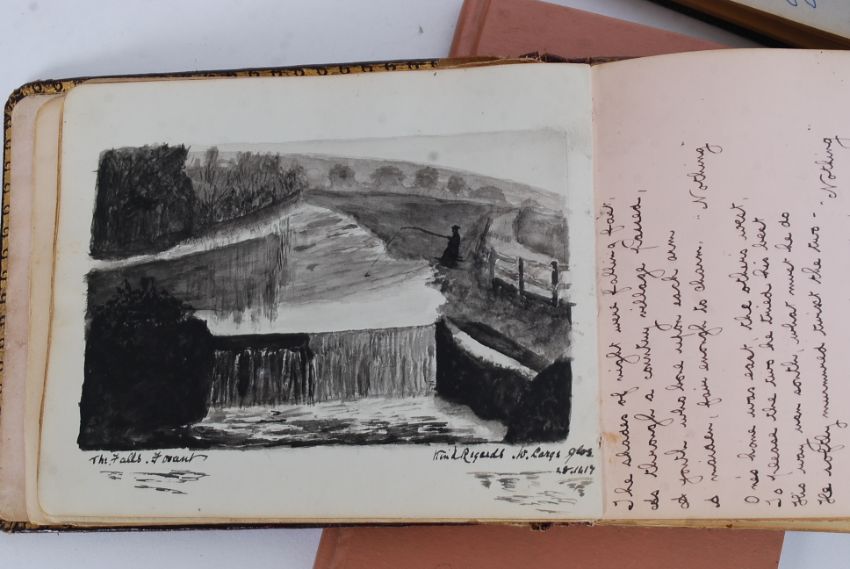 The Falls. Fovant
Kind Regards W. Large
The shades of night were falling fast,
As through a country village passed,
A youth who bore upon each arm
A maiden, fair enough to charm. "Nothing"
One's home was east, the others west,
To please the two he tried his best
His way was south, what must he do
He softly murmured twixt the two - "Nothing